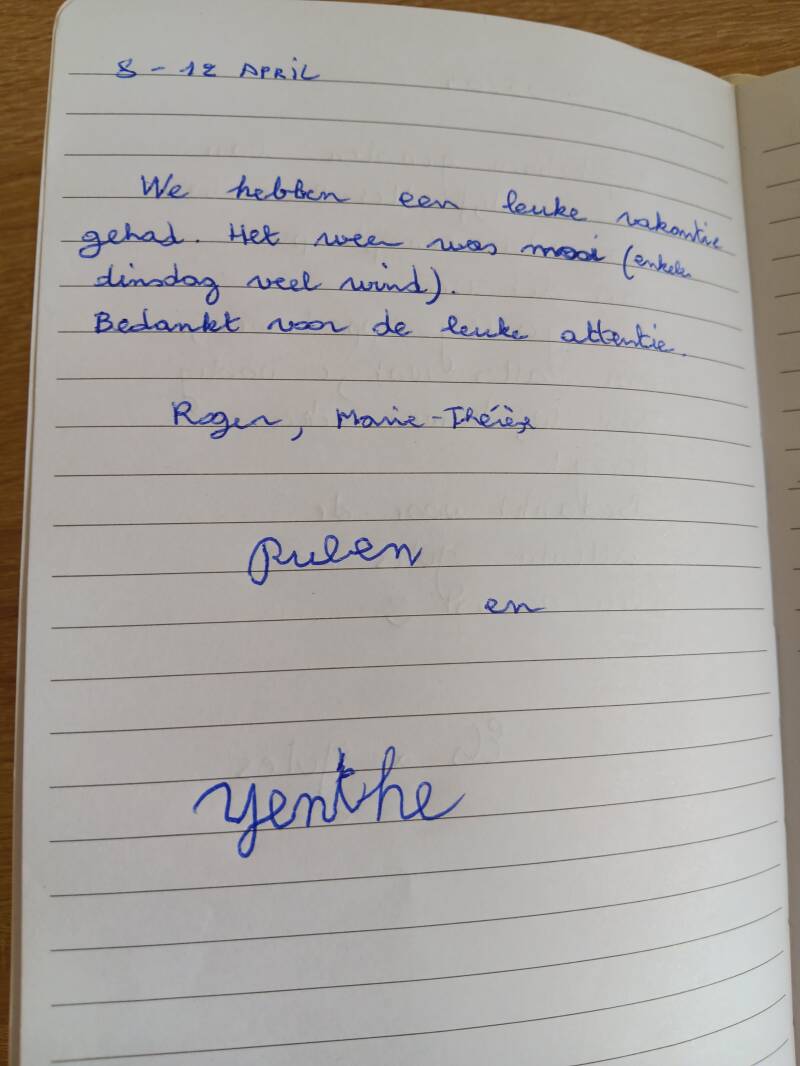 8 - 12 APRIL
We hebben een leuke vakantie
gehad. Het weer was mooi (enkel
dinsdag veel wind).
Bedankt voor de leuke attentie.
Roger, Marie-Thérèse
Ruben
en
Yenthe